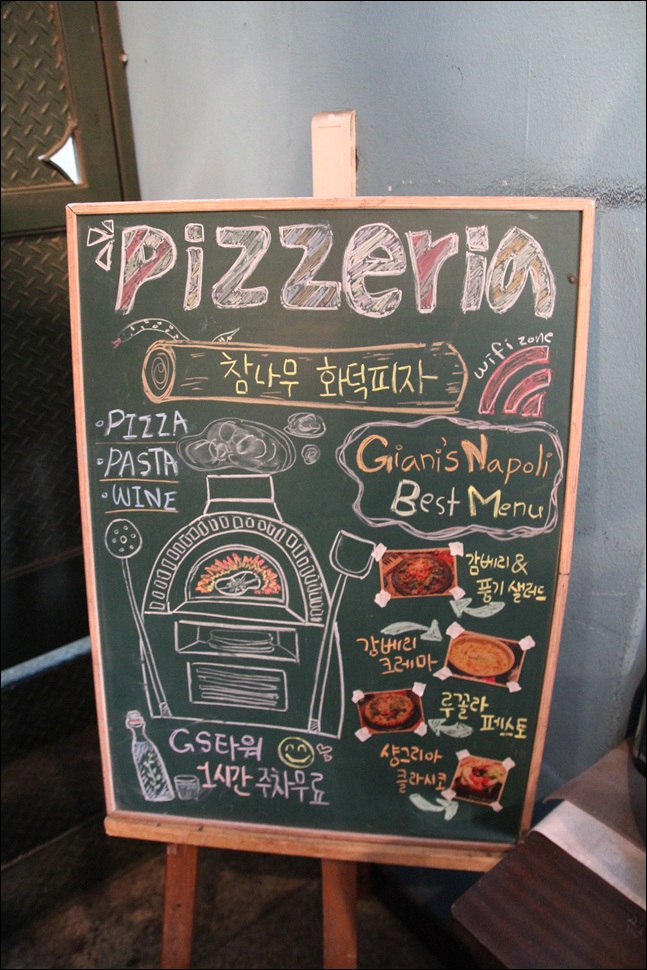 Pizzeria
wifi zone
참나무 화덕피자
PIZZA
PASTA
WINE
Giani's Napoli
Best Menu
감베리 &
풍기 샐러드
감베리
크레마
루꼴라
페스토
샹그리아
클라시코
GS타워
1시간 주차무료